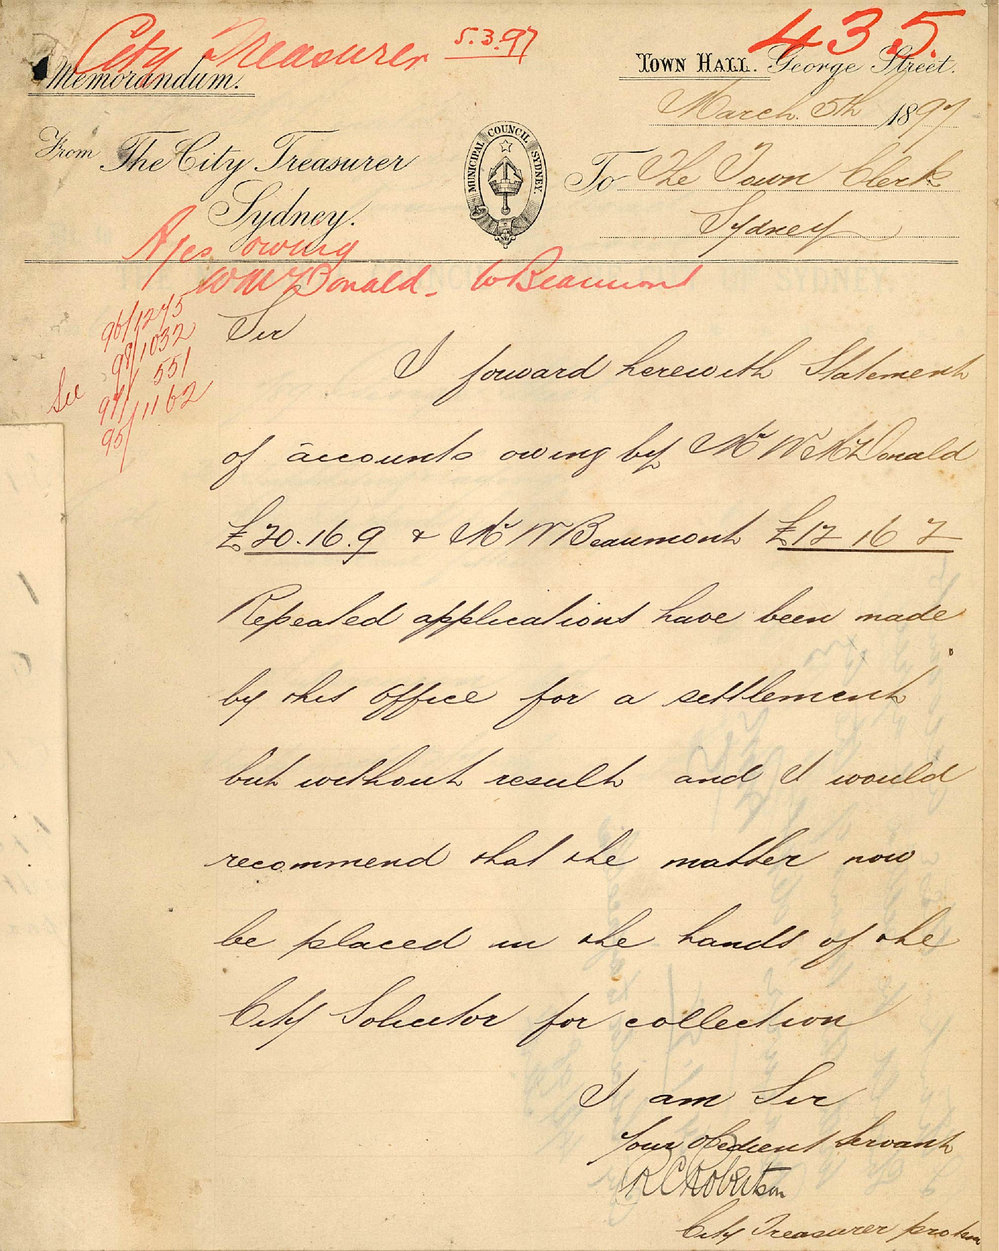 City Treasurer 5.3.97
435
Memorandum.
TOWN HALL. George Street.
March. 5th 1897
From The City Treasurer
Sydney.
MUNICIPAL COUNCIL SYDNEY.
To The Town Clerk
Sydney
A/cs owing
W McDonald - W Beaumont
96/1275
98/1032
See 97/551
95/1162
Sir
I forward herewith Statement
of accounts owing by Mr W McDonald
£20.16.9 & Mr W Beaumont £12 16 7
Repeated applications have been made
by this Office for a settlement
but without result and I would
recommend that the matter now
be placed in the hands of the
City Solicitor for collection
I am Sir
Your Obedient Servant
R C Robertson
City Treasurer pro tem